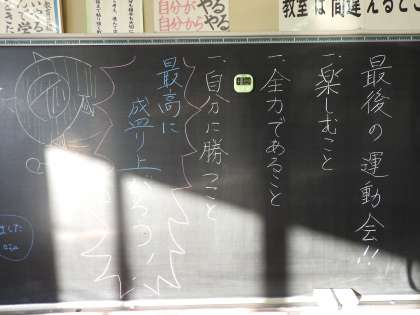 最後の運動会!!
一.楽しむこと
一.全力であること
一.自分に勝つこと
最高に
盛り上がろう!
自分がやる
自分からやる
教室は間違えるとこ
ました